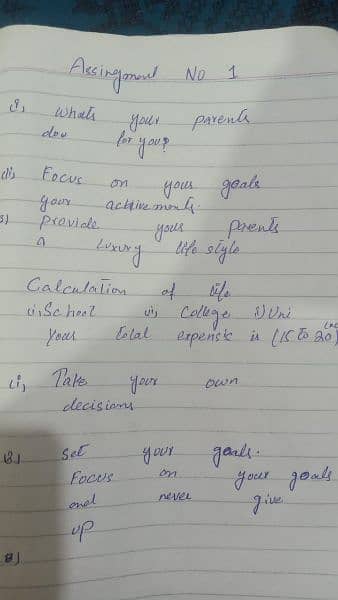 Assingment No 1
i, whats your parents
dou for you?
ii, Focus on your goals
your achivements.
provide your parents
a luxury life style
Calculation of life
i, School ii, College i) Uni
your total expensis is (15 to 20
ii, Take your own
decisions
set your goals.
Focus on your goals
and never give
up